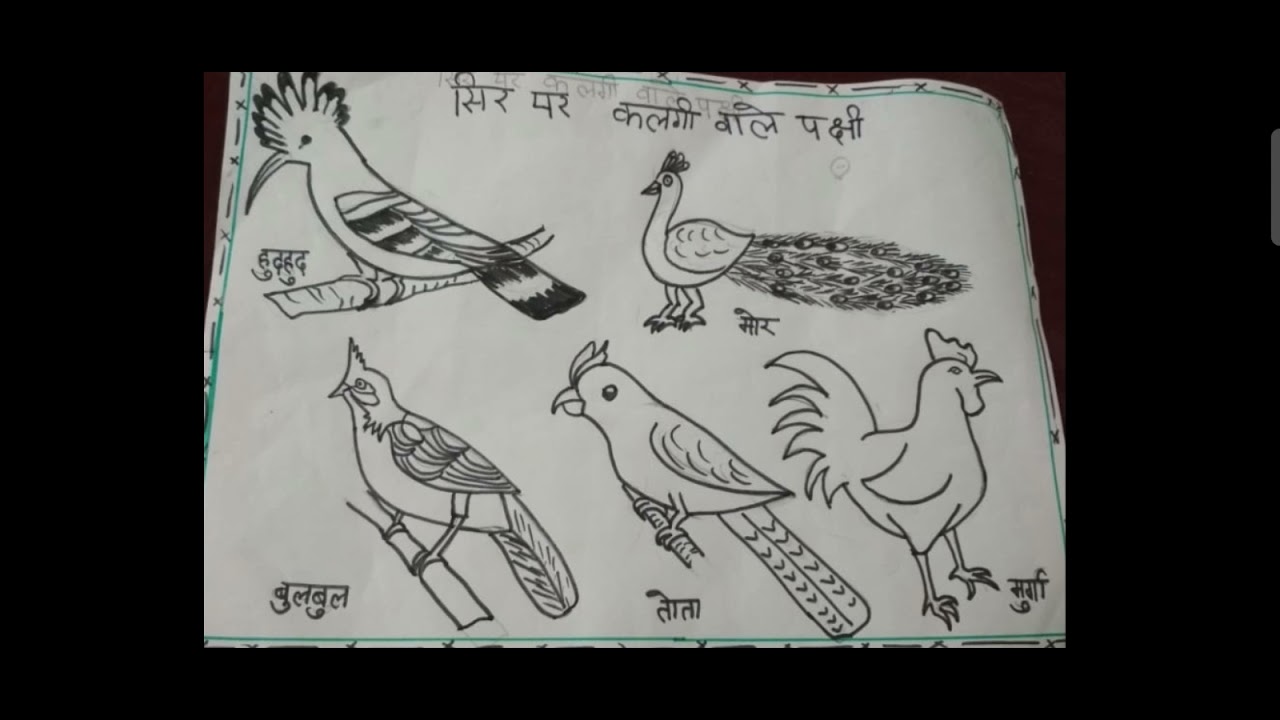 सिर पर कलगी वाले पक्षी
हुदहुद
मोर
बुलबुल
तोता
मुर्गा